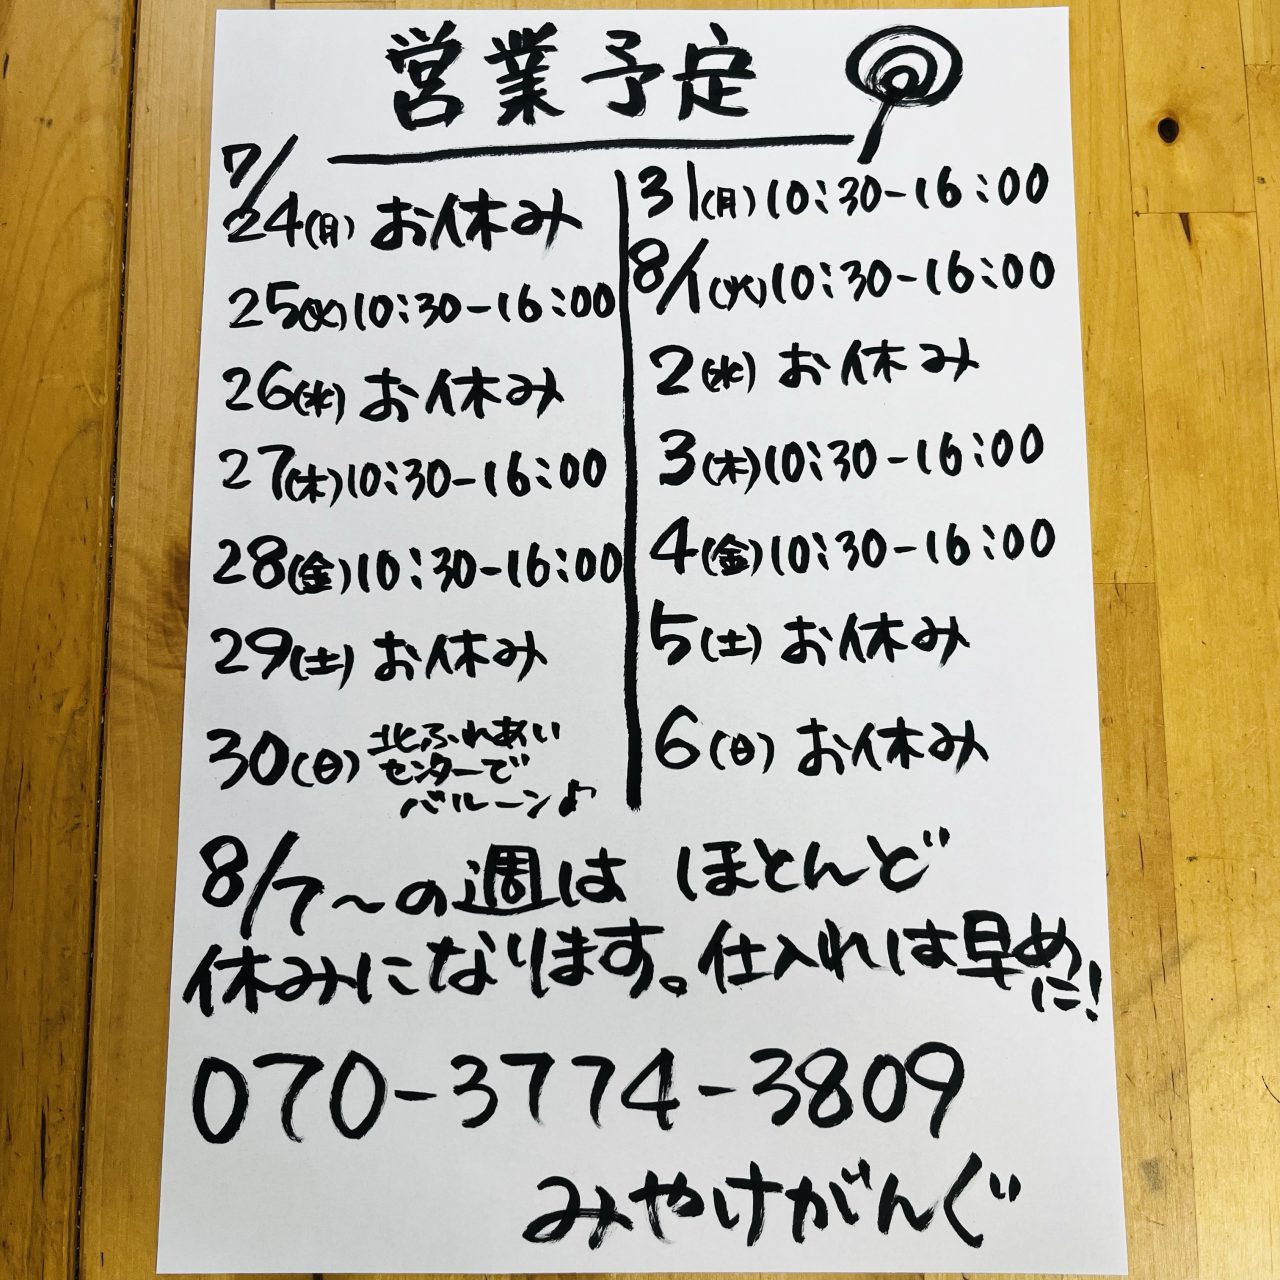 営業予定
7/24(月) お休み
25(火)10:30-16:00
26(水) お休み
27(木)10:30-16:00
28(金)10:30-16:00
29(土) お休み
30(日) 北ふれあい
センターで
バルーン♪
31(月)10:30-16:00
8/1(火)10:30-16:00
2(水) お休み
3(木)10:30-16:00
4(金)10:30-16:00
5(土) お休み
6(日) お休み
8/7〜の週は ほとんど
休みになります。仕入れは早めに!
070-3774-3809
みやけがんぐ